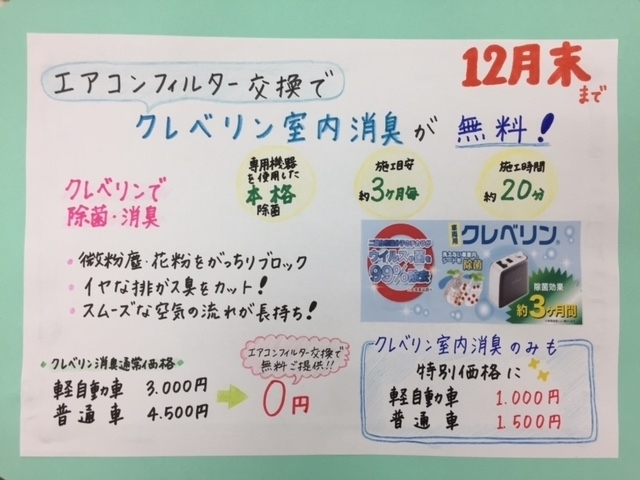 12月末
まで
エアコンフィルター交換で
クレベリン室内消臭が 無料!
クレベリンで
除菌・消臭
専用機器
を使用した
本格
除菌
施工目安
約3ヶ月毎
施工時間
約20分
・微粉塵・花粉をがっちりブロック
・イヤな排がス臭をカット!
・スムーズな空気の流れが長持ち!
車両用 クレベリン
ウイルス・菌を
99%
除菌
除菌効果
約3ヶ月間
クレベリン消臭通常価格
軽自動車 3.000円
普通車 4.500円
エアコンフィルター交換で
無料ご提供!!
0円
クレベリン室内消臭のみも
特別価格に
軽自動車 1.000円
普通車 1.500円